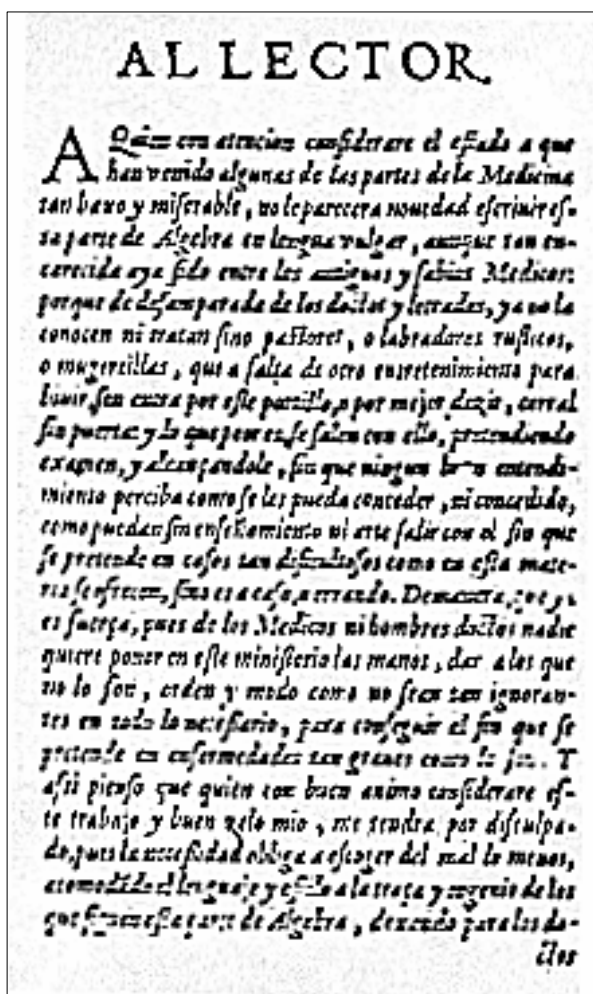 AL LECTOR.
A Quien con atencion considerare el estado a que
han venido algunas de las partes de la Medicina
tan baxo y miserable, no le parecera nouedad escriuir es-
ta parte de Algebra en lengua vulgar, aunque tan en-
carecida aya sido entre los antiguos y sabios Medicos:
porque de desamparada de los doctos y letrados, ya no la
conocen ni tratan sino pastores, o labradores rusticos,
o mugercillas, que a falta de otro entretenimiento para
biuir, se entra por este , o por mejor dezir, corral
sin puertas y lo que peor es, se salen con ello, pretendiendo
examen, y alcançandole, sin que ningun buen entendi-
miento perciba como se les pueda conceder, ni concedido,
como puedan sin enseñamiento ni arte salir con el fin que
se pretende en casos tan dificultosos como en esta mate-
ria se ofrecen, sino es a caso, o errando. De manera, que ya
es fuerça, pues de los Medicos ni hombres doctos nadie
quiere poner en este ministerio las manos, dar a los que
no lo son, orden y modo como no sean tan ignoran-
tes en todo lo necessario, para conseguir el fin que se
pretende en enfermedades tan graues como lo son. Y
assi pienso que quien con buen animo considerare es-
te trabajo y buen zelo mio, me tendra por disculpa-
do, pues la necessidad obliga a escoger del mal lo menos,
acomodãdo el lenguaje y estilo a la traça y ingenio de los
que siguen esta parte de Algebra, dexando para los do-
ctos